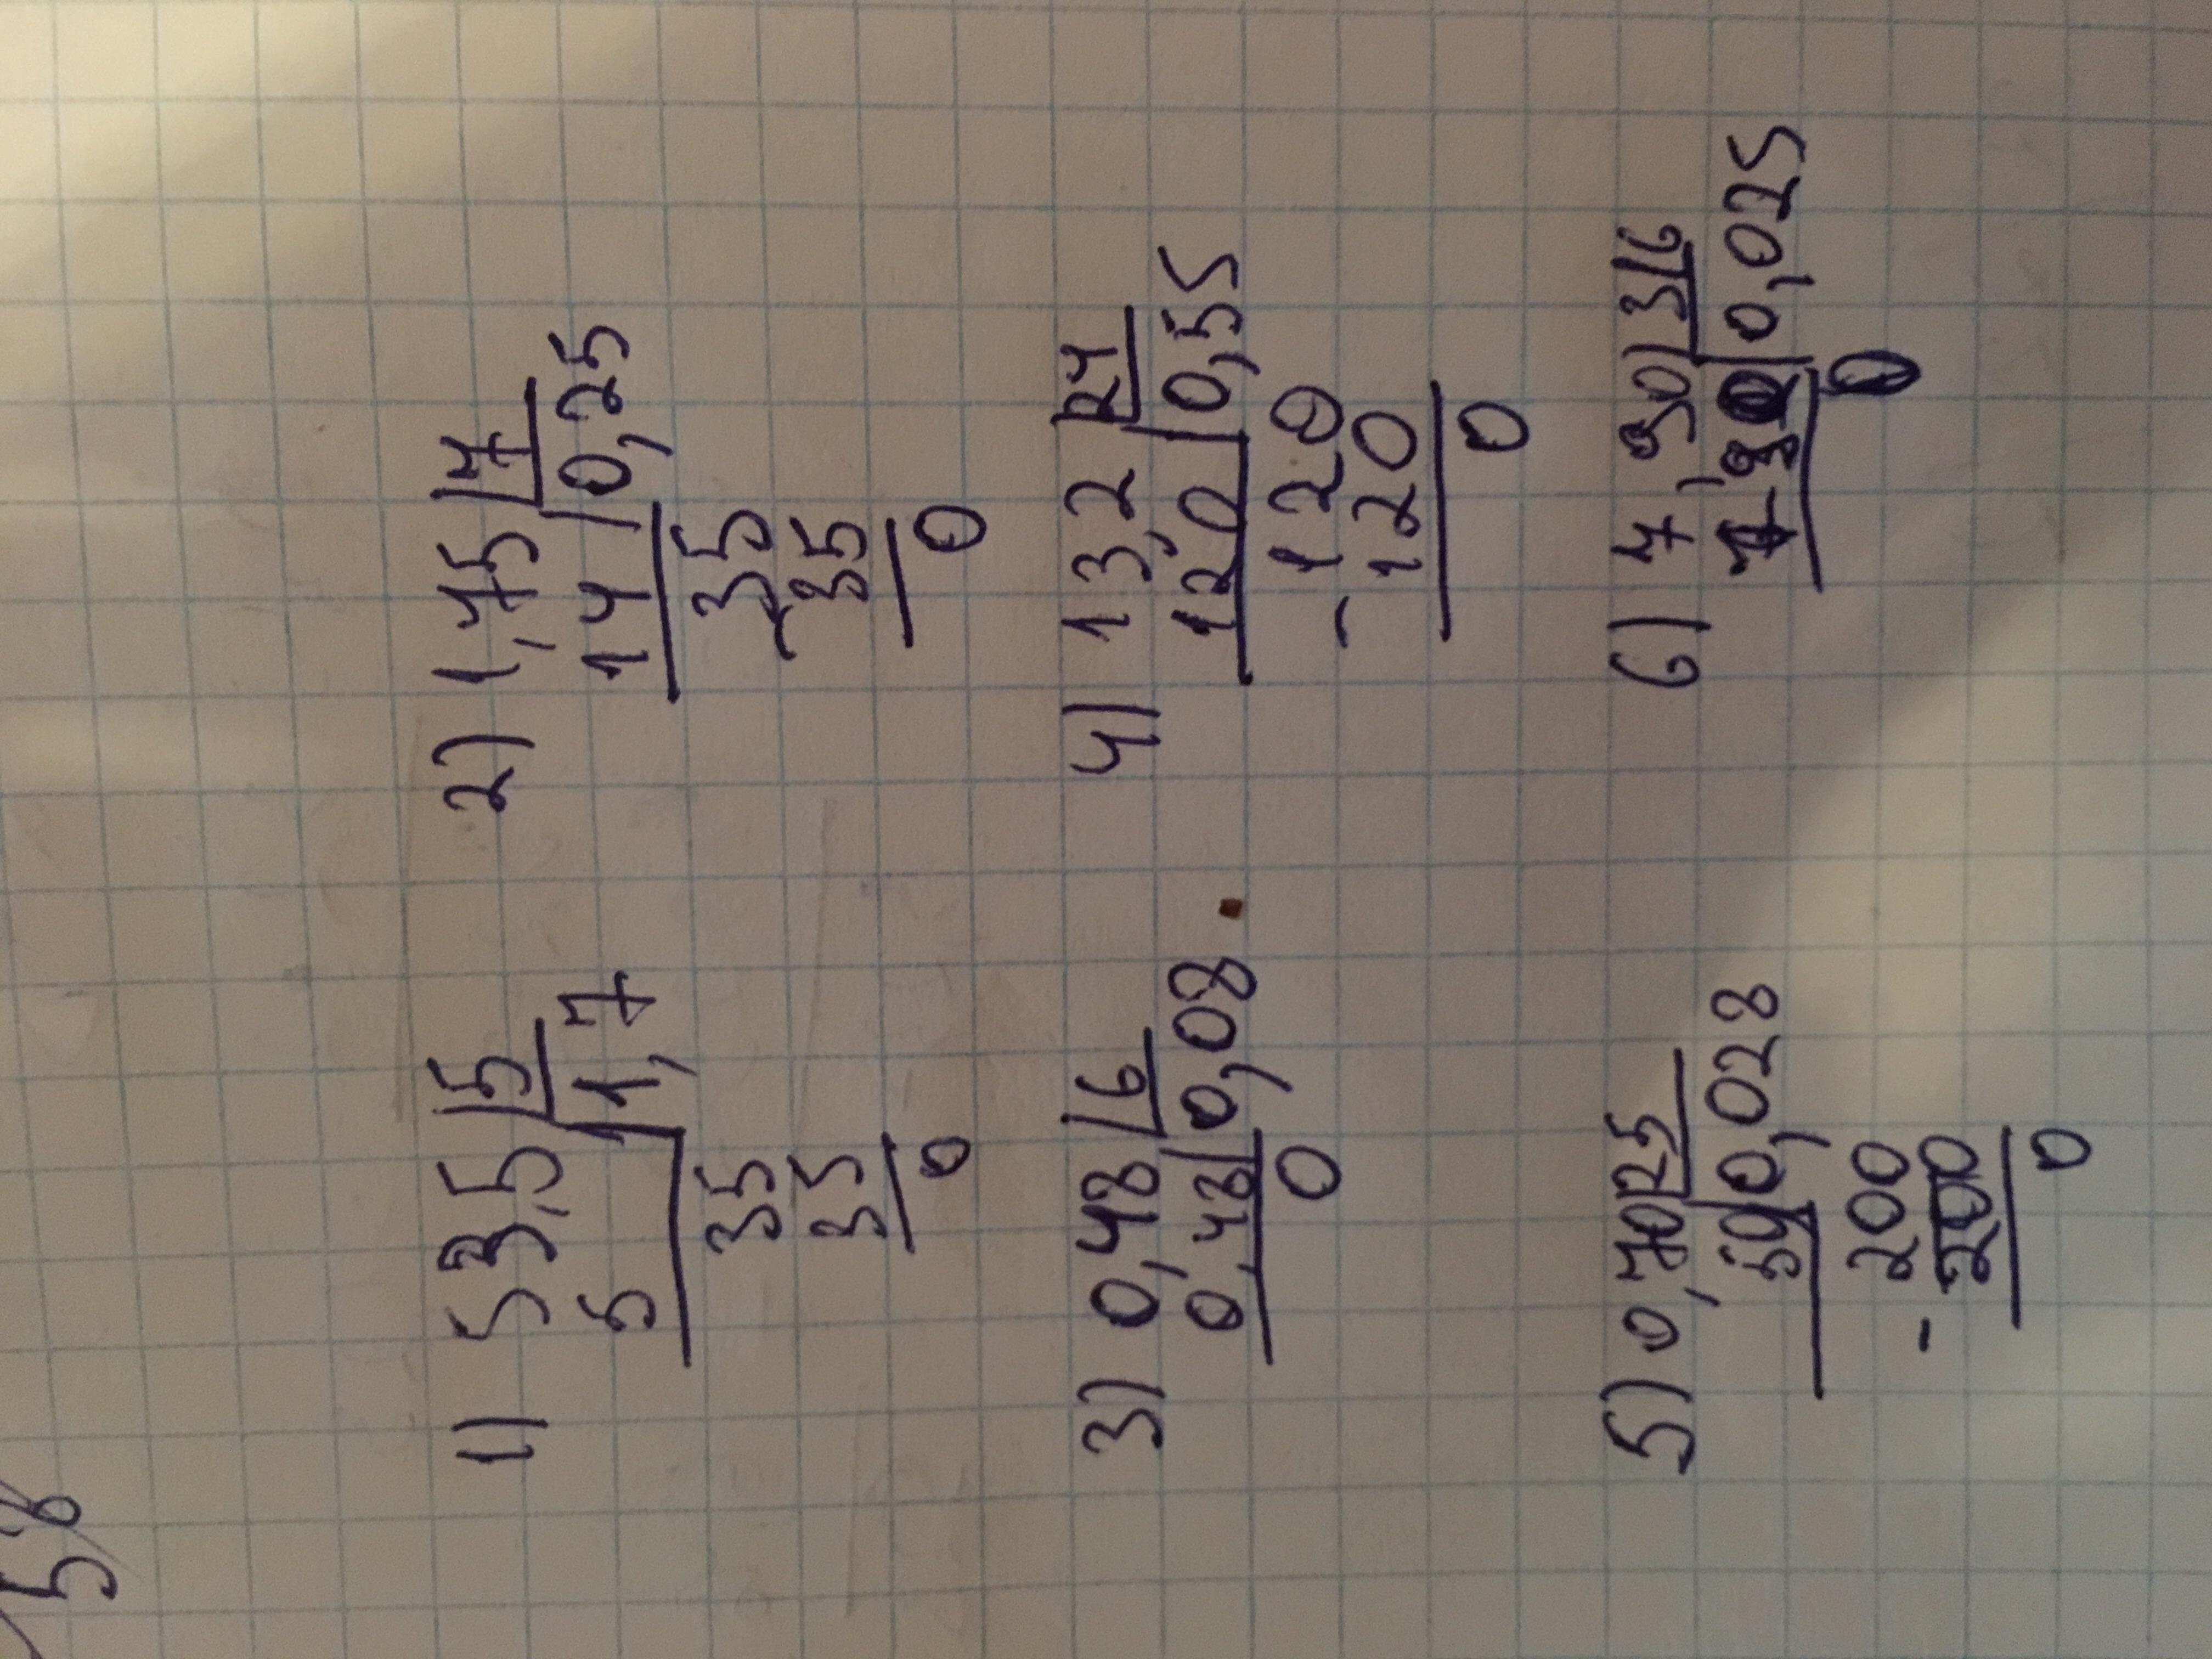 58
1) 53,5 |5 2) 1,75 |7
5 |1,7 14 |0,25
35 35
35 35
0 0
3) 0,48 |6 4) 13,2 |24
0,48 |0,08 12,0 |0,55
0 - 120
120
0
5) 0,70 |25 6) 7,90 |316
50 |0,028 7,90 |0,025
- 200 0
200
0